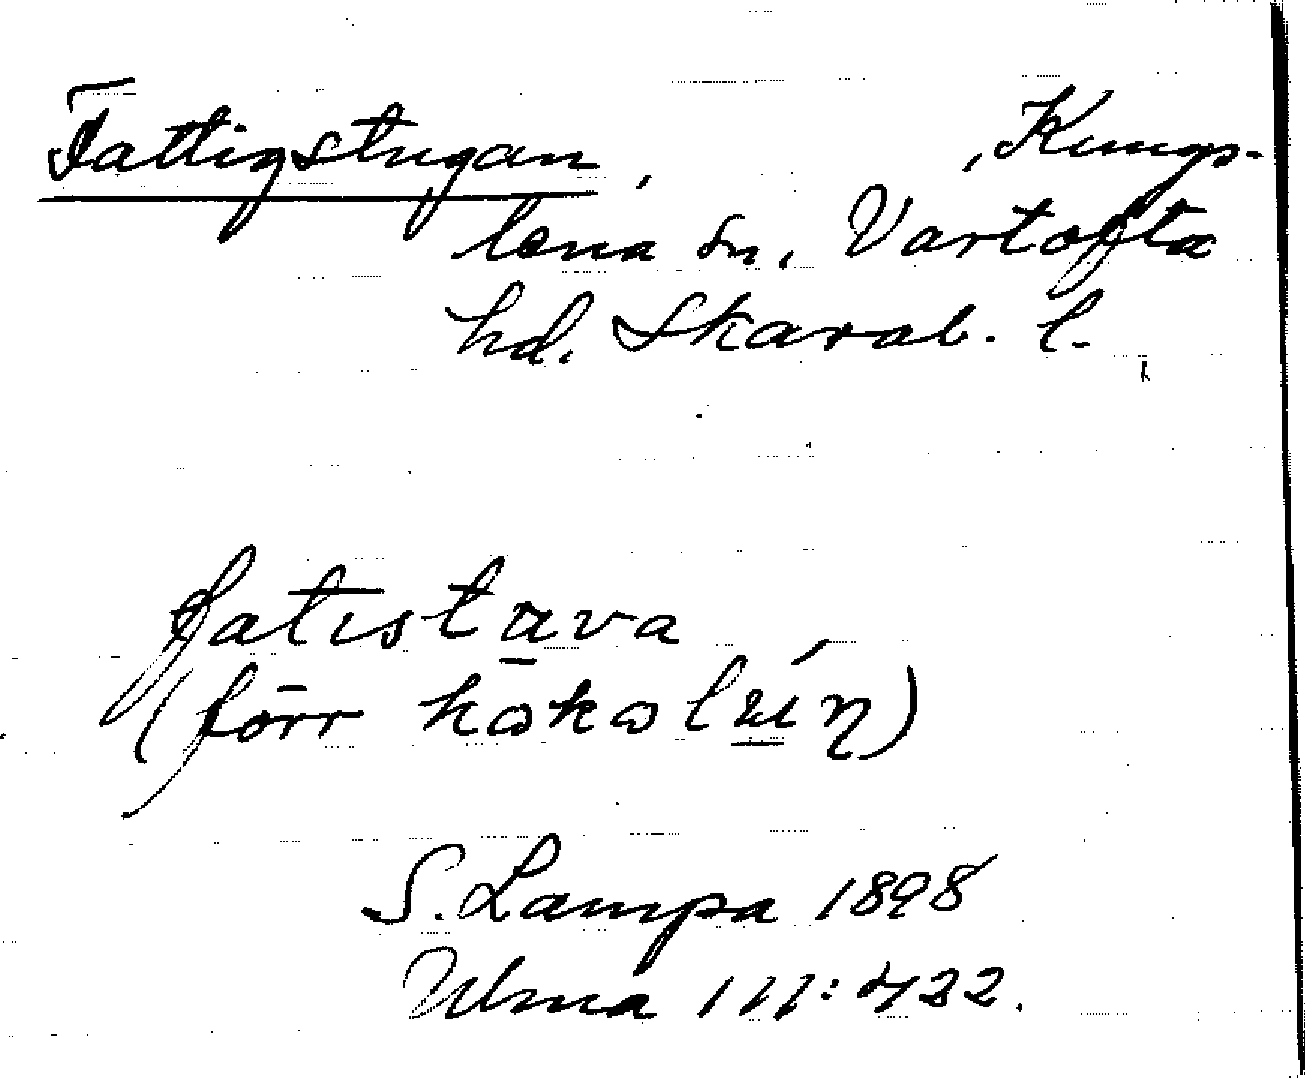 Fattigstugan, , Kungs-
lena sn, Vartofta
hd. Skarab. l.
fatıstäva
(fōrr kωkωlu̲ín)
S. Lampa 1898
Ulma 111:422.